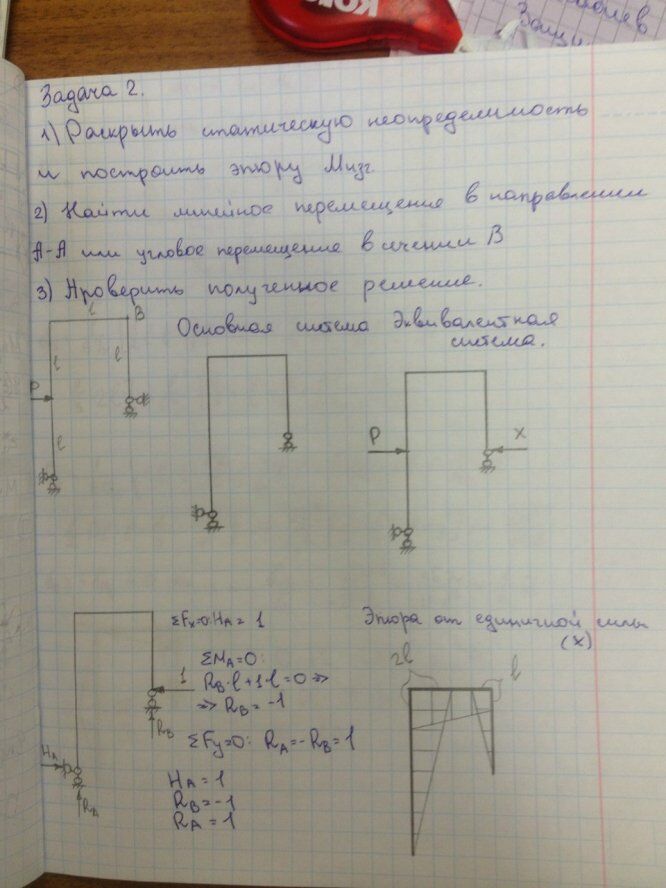 KOR
Задача 2.
1) Раскрыть статическую неопределимость
и построить эпюру Mизг.
2) Найти линейное перемещение в направлении
А-А или угловое перемещение в сечении В
3) Проверить полученное решение.
l B
l l
P
l
Основная система
Эквивалентная
система.
P X
ΣFx=0: HA = 1
ΣMA=0:
RB·l+1·l=0 =>
=> RB = -1
ΣFy=0: RA=-RB=1
HA = 1
RB = -1
RA = 1
1
RB
HA
RA
Эпюра от единичной силы
(X)
2l l